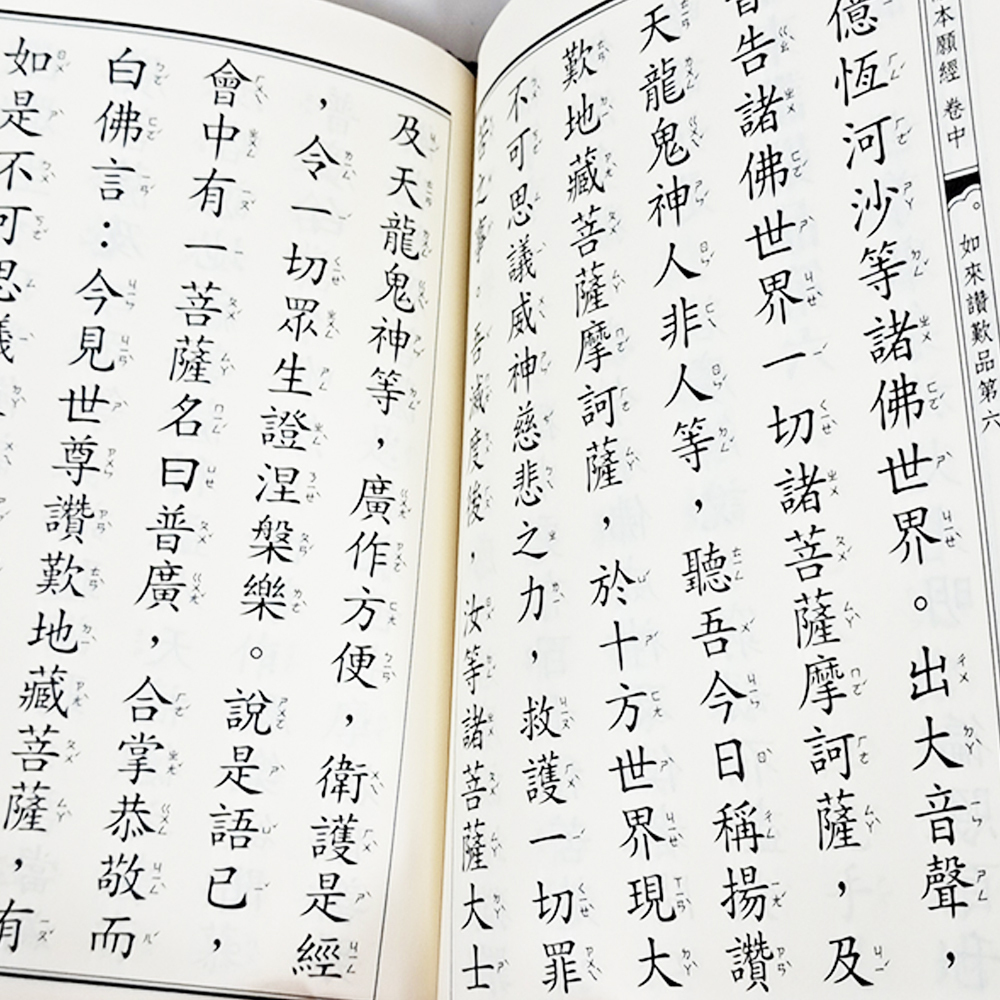 本願經 卷中
如來讚歎品第六
億恆河沙等諸佛世界。出大音聲，
告諸佛世界一切諸菩薩摩訶薩，及
天龍鬼神人非人等，聽吾今日稱揚讚
歎地藏菩薩摩訶薩，於十方世界現大
不可思議威神慈悲之力，救護一切罪
苦之事。吾滅度後，汝等諸菩薩大士
及天龍鬼神等，廣作方便，衛護是經
，令一切眾生證涅槃樂。說是語已，
會中有一菩薩名曰普廣，合掌恭敬而
白佛言：今見世尊讚歎地藏菩薩，有
如是不可思議